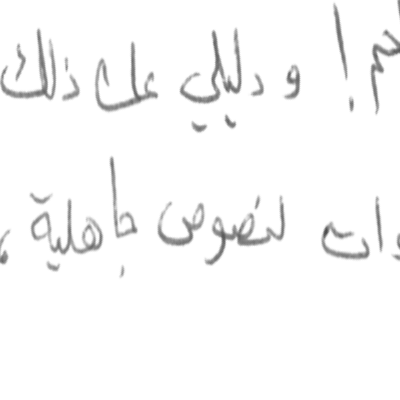 ! ودليلي على ذلك
لنصوص جاهلية،